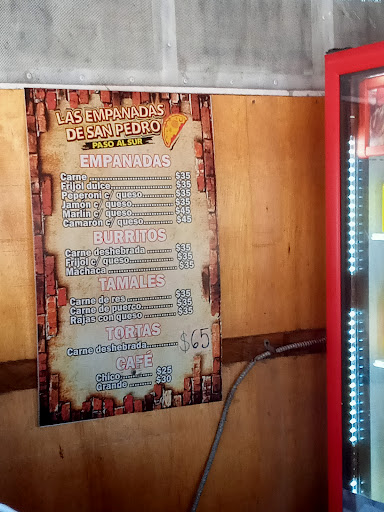 LAS EMPANADAS
DE SAN PEDRO
PASO AL SUR
EMPANADAS
Carne ................... $35
Frijol dulce............... $35
Peperoni c/ queso....... $35
Jamon c/ queso.......... $35
Marlin c/ queso.......... $45
Camarón c/ queso....... $45
BURRITOS
Carne deshebrada ....... $35
Frijol c/ queso............ $35
Machaca .................. $35
TAMALES
Carne de res ............. $35
Carne de puerco......... $35
Rajas con queso......... $35
TORTAS
Carne deshebrada....... $65
CAFÉ
Chico............ $25
Grande ......... $30